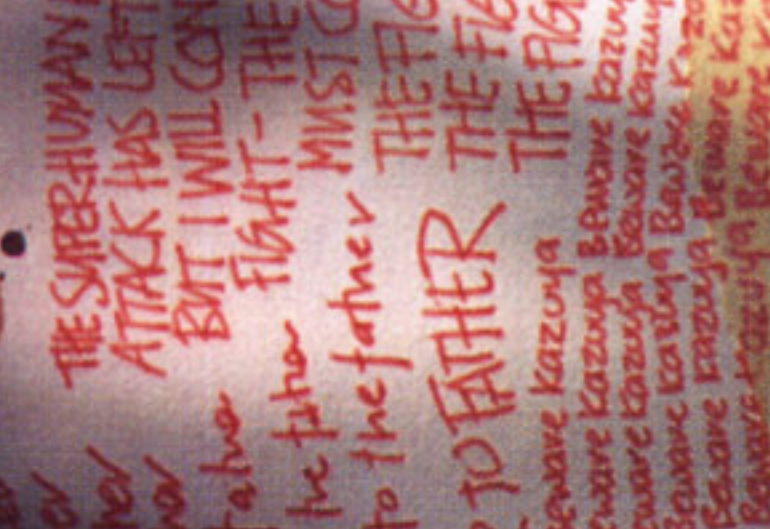 THE SUPERHUMAN
ATTACK HAS LEFT
BUT I WILL CON
FIGHT - THE
MUST CO
THE FIG
THE FIG
THE FIG
her
the father
to the father
TO FATHER
Beware Kazuya
Beware Kazuya Beware Kazuya
Beware Kazuya Beware Kazuya
Beware Kazuya Beware Kazu
Beware Kazuya Beware Kaz
Beware Kazuya Beware K